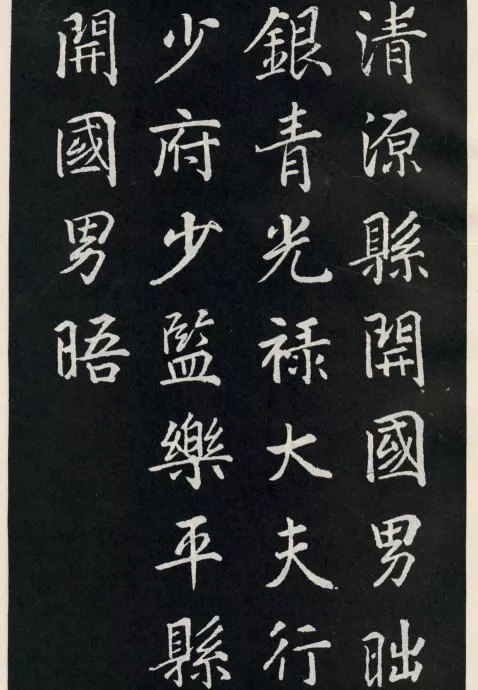 清源縣開國男昢
銀青光禄大夫行
少府少監樂平縣
開國男晤